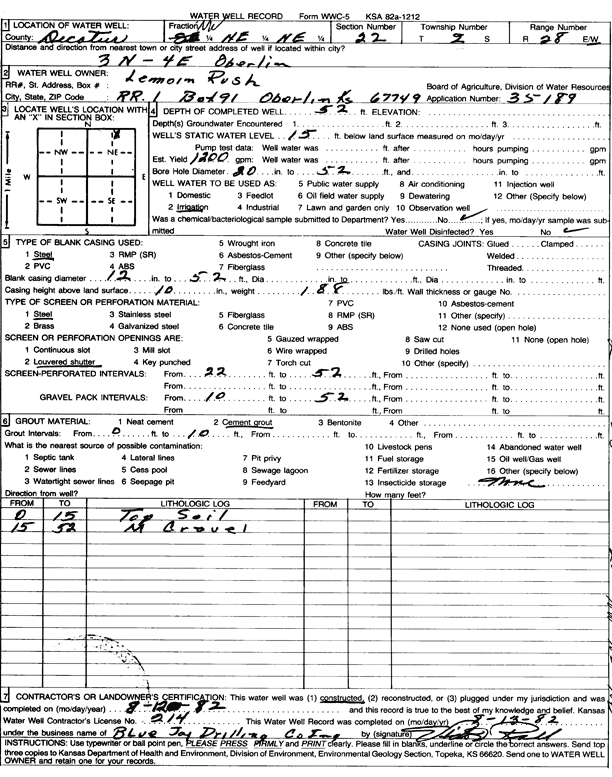 WATER WELL RECORD Form WWC-5 KSA 82a-1212
1 LOCATION OF WATER WELL: Fraction NW Section Number Township Number Range Number
County: Decatur ¼ NE ¼ NE ¼ 22 T 2 S R 28 E/W
Distance and direction from nearest town or city street address of well if located within city?
3 N - 4E Oberlin
2 WATER WELL OWNER: Lemoin Rush
RR#, St. Address, Box # : Board of Agriculture, Division of Water Resources
City, State, ZIP Code RR. 1 Box 91 Oberlin Ks 67749 Application Number: 35189
3 LOCATE WELL'S LOCATION WITH AN "X" IN SECTION BOX: 4 DEPTH OF COMPLETED WELL 52 ft. ELEVATION:
N
Depth(s) Groundwater Encountered 1. ft. 2. ft. 3. ft.
X
WELL'S STATIC WATER LEVEL 15 ft. below land surface measured on mo/day/yr
NW NE
Pump test data: Well water was ft. after hours pumping gpm
Est. Yield 1200 gpm: Well water was ft. after hours pumping gpm
1 Mile W E
Bore Hole Diameter 20 in. to 52 ft., and in. to ft.
WELL WATER TO BE USED AS: 5 Public water supply 8 Air conditioning 11 Injection well
1 Domestic 3 Feedlot 6 Oil field water supply 9 Dewatering 12 Other (Specify below)
SW SE
2 Irrigation 4 Industrial 7 Lawn and garden only 10 Observation well
Was a chemical/bacteriological sample submitted to Department? Yes No ✓; If yes, mo/day/yr sample was sub-
S
mitted Water Well Disinfected? Yes No ✓
5 TYPE OF BLANK CASING USED: 5 Wrought iron 8 Concrete tile CASING JOINTS: Glued Clamped
1 Steel 3 RMP (SR) 6 Asbestos-Cement 9 Other (specify below) Welded
2 PVC 4 ABS 7 Fiberglass Threaded
Blank casing diameter 12 in. to 52 ft., Dia in. to ft., Dia in. to ft.
Casing height above land surface 10 in., weight 1.88 lbs./ft. Wall thickness or gauge No.
TYPE OF SCREEN OR PERFORATION MATERIAL: 7 PVC 10 Asbestos-cement
1 Steel 3 Stainless steel 5 Fiberglass 8 RMP (SR) 11 Other (specify)
2 Brass 4 Galvanized steel 6 Concrete tile 9 ABS 12 None used (open hole)
SCREEN OR PERFORATION OPENINGS ARE: 5 Gauzed wrapped 8 Saw cut 11 None (open hole)
1 Continuous slot 3 Mill slot 6 Wire wrapped 9 Drilled holes
2 Louvered shutter 4 Key punched 7 Torch cut 10 Other (specify)
SCREEN-PERFORATED INTERVALS: From 22 ft. to 52 ft., From ft. to ft.
From ft. to ft., From ft. to ft.
GRAVEL PACK INTERVALS: From 10 ft. to 52 ft., From ft. to ft.
From ft. to ft., From ft. to ft.
6 GROUT MATERIAL: 1 Neat cement 2 Cement grout 3 Bentonite 4 Other
Grout Intervals: From 0 ft. to 10 ft., From ft. to ft., From ft. to ft.
What is the nearest source of possible contamination: 10 Livestock pens 14 Abandoned water well
1 Septic tank 4 Lateral lines 7 Pit privy 11 Fuel storage 15 Oil well/Gas well
2 Sewer lines 5 Cess pool 8 Sewage lagoon 12 Fertilizer storage 16 Other (specify below)
3 Watertight sewer lines 6 Seepage pit 9 Feedyard 13 Insecticide storage None
Direction from well? How many feet?
FROM TO LITHOLOGIC LOG FROM TO LITHOLOGIC LOG
0 15 Top Soil
15 52 M Gravel
7 CONTRACTOR'S OR LANDOWNER'S CERTIFICATION: This water well was (1) constructed, (2) reconstructed, or (3) plugged under my jurisdiction and was
completed on (mo/day/year) and this record is true to the best of my knowledge and belief. Kansas
Water Well Contractor's License No. 214 This Water Well Record was completed on (mo/day/yr) 8-13-82
under the business name of Blue Jay Drilling Co Inc by (signature)
INSTRUCTIONS: Use typewriter or ball point pen, PLEASE PRESS FIRMLY and PRINT clearly. Please fill in blanks, underline or circle the correct answers. Send top
three copies to Kansas Department of Health and Environment, Division of Environment, Environmental Geology Section, Topeka, KS 66620. Send one to WATER WELL
OWNER and retain one for your records.